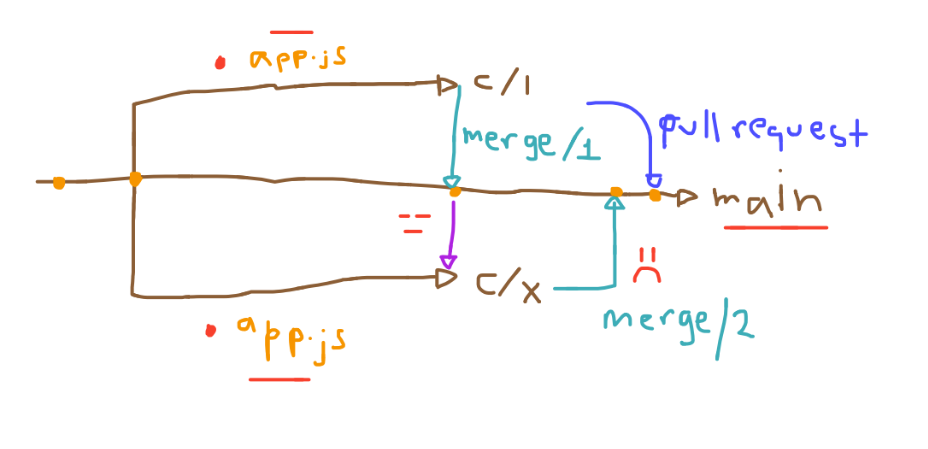 app.js
c/1
merge/1
pull request
main
c/x
merge/2
app.js